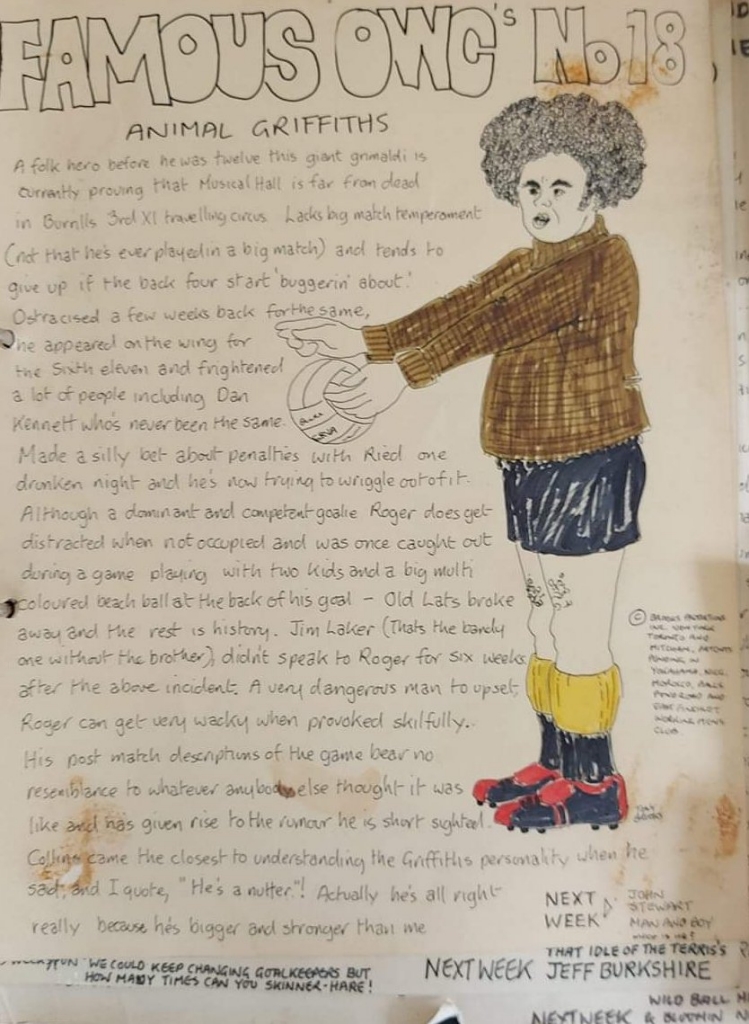 FAMOUS OWC's No 18
ANIMAL GRIFFITHS
A folk hero before he was twelve this giant grimaldi is
currently proving that Musical Hall is far from dead
in Burnlls 3rd XI travelling circus. Lacks big match temperament
(not that he's ever played in a big match) and tends to
give up if the back four start 'buggerin' about.'
Ostracised a few weeks back for the same,
he appeared on the wing for
the Sixth eleven and frightened
a lot of people including Dan
Kennett who's never been the same.
Made a silly bet about penalties with Ried one
drunken night and he's now trying to wriggle out of it.
Although a dominant and competent goalie Roger does get
distracted when not occupied and was once caught out
during a game playing with two kids and a big multi
coloured beach ball at the back of his goal – Old Lats broke
away and the rest is history. Jim Laker (Thats the bandy
one without the brother), didn't speak to Roger for six weeks
after the above incident. A very dangerous man to upset,
Roger can get very wacky when provoked skilfully..
His post match descriptions of the game bear no
resemblance to whatever anybody else thought it was
like and has given rise to the rumour he is short sighted.
Collins came the closest to understanding the Griffiths personality when he
said, and I quote, "He's a nutter."! Actually he's all right
really because he's bigger and stronger than me
©
INC. NEW YORK
TORONTO AND
MITCHAM. PATENTS
PENDING IN
AND
WORKING MENS
CLUB.
TONY
NEXT
WEEK
JOHN
STEWART
MAN AND BOY
THAT IDLE OF THE TERRIS'S
NEXT WEEK JEFF BURKSHIRE
WE COULD KEEP CHANGING GOALKEEPERS BUT
HOW MANY TIMES CAN YOU SKINNER-HARE!
WILD BALL
NEXT WEEK &